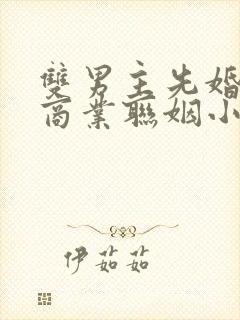 雙男主先婚
商業聯姻小
伊茹茹